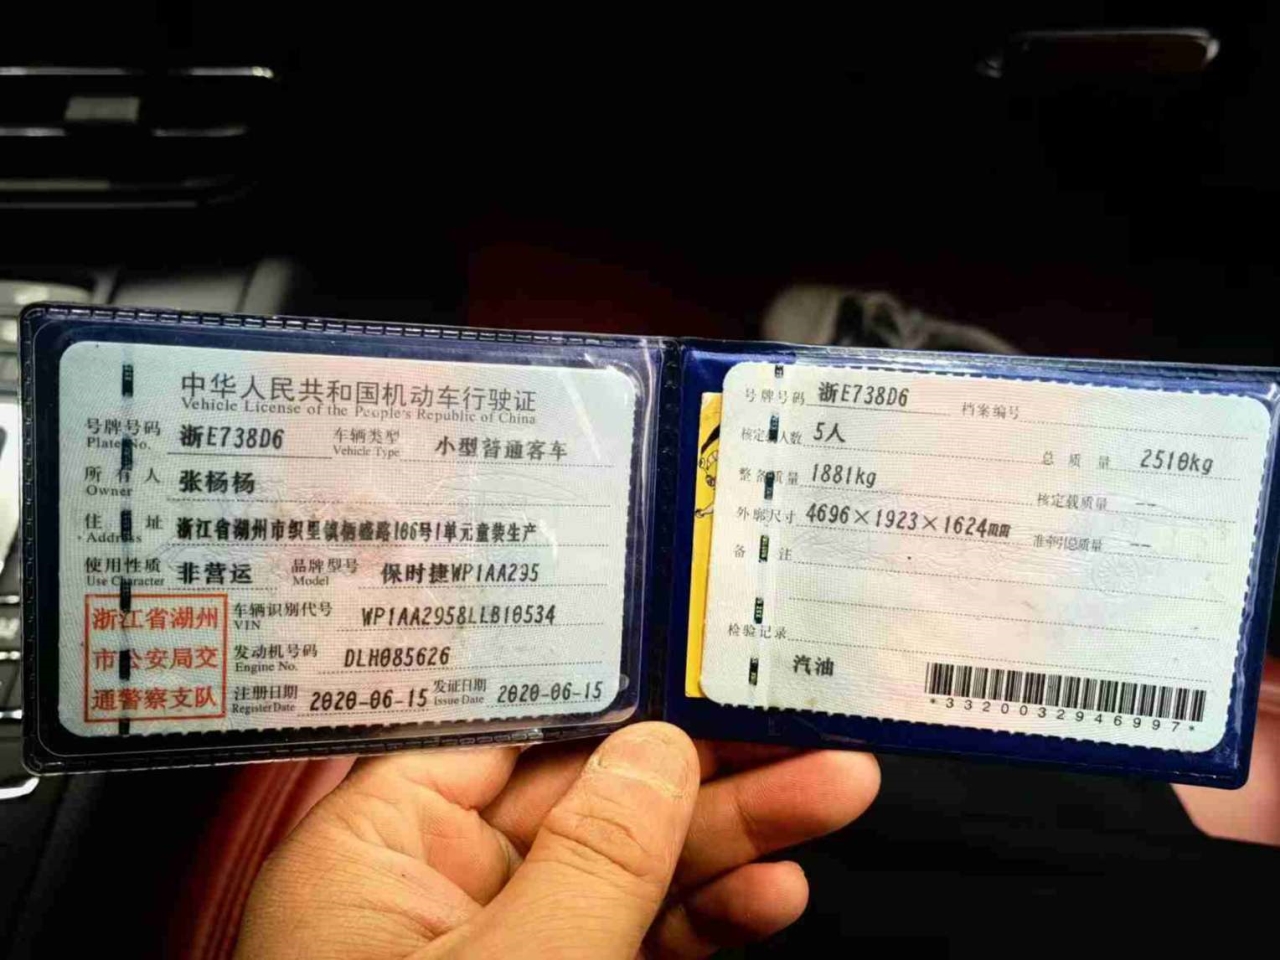 中华人民共和国机动车行驶证
Vehicle License of the People's Republic of China
号牌号码 浙E738D6 车辆类型 小型普通客车
Plate No. Vehicle Type
所有人 张杨杨
Owner
住址 浙江省湖州市织里镇栋盛路166号1单元童装生产
Address
使用性质 非营运 品牌型号 保时捷WP1AA295
Use Character Model
浙江省湖州
市公安局交
通警察支队
车辆识别代号 WP1AA2958LLB10534
VIN
发动机号码 DLH085626
Engine No.
注册日期 2020-06-15 发证日期 2020-06-15
Register Date Issue Date
号牌号码 浙E738D6 档案编号
核定载人数 5人 总质量 2510kg
整备质量 1881kg 核定载质量 --
外廓尺寸 4696×1923×1624mm 准牵引总质量 --
备注
检验记录
汽油
*3320032946997*